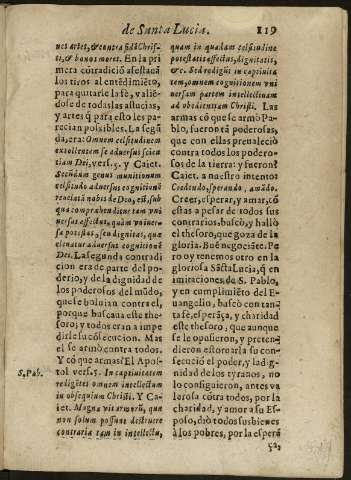 de Santa Lucia. 119
nes artes, & contra fidē Chris-
ti, & bonos mores. En la pri
mera cōtradició asestauā
los tiros al entēdimiēto,
para quitarle la fè, valiē-
dose de todas las astucias,
y artes q̄ para esto les pa-
recian possibles. La segū
da, era: Omnem celsitudinem
extollentem se aduersus scien
tiam Dei, vers. 5. y Caiet.
Secūdum genus munitionum
celsitudo aduersus cognitionē
reuelatā nobis de Deo, est, sub
qua comprehenditur tam vni
uersus effectus, quam vniuer
sa potestas, seu dignitas, quæ
eleuatur aduersus cognitionē
Dei. La segunda contradi
cion era de parte del po-
derio, y de la dignidad de
los poderosos del mūdo,
que se boluian contra el,
porque buscaua este the-
soro; y todos eran a impe
dirle su cōsecucion. Mas
el se armò contra todos.
Y có que armas? El Apos-
S. Pab. tol vers. 5. In captiuitatem
redigētes omnem intellectum
in obsequium Christi. Y Ca-
iet. Magna vis armorū, quæ
non solum possunt destruere
contraria tam in intellectu,
quam in qualem celsitudine
potestatis effectus, dignitatis,
&c. Sed redigūt in captiuita
tem, omnem cognitionem vni
uersam partem intellectiuam
ad obedientiam Christi. Las
armas cō que se armò Pa-
blo, fueron tā poderosas,
que con ellas preualeció
contra todos los podero-
sos de la tierra: y fueron?
Caiet. a nuestro intento:
Credendo, sperando, amādo.
Creer, esperar, y amar, có
estas a pesar de todos sus
contrarios, buscò, y hallò
el thesoro, que goza de la
gloria. Bué negociāte. Pe
ro oy tenemos otro en la
gloriosa Sāta Lucia, q̄ en
imitaciones, de S. Pablo,
y en cumplimiēto del E-
uangelio, buscò con tan-
ta fe, esperāça, y charidad
este thesoro, que aunque
se le opusieron, y preten-
dieron estoruarla su con-
secucion el poder, y la dig-
nidad de los tyranos, no
lo consiguieron, antes va
lerosa cōtra todos, por la
charidad, y amor a su Es-
poso, dió todos sus bienes
à los pobres, por la esperā
ça,